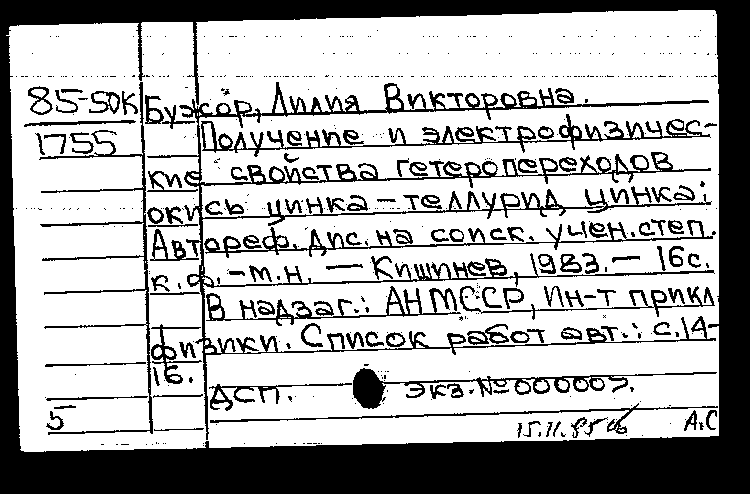 85-50К Бужор, Лилия Викторовна.
1755 Получение и электрофизичес-
кие свойства гетеропереходов
окись цинка – теллурид цинка:
Автореф. дис. на соиск. учен. степ.
к.ф.-м.н. — Кишинев, 1983. — 16с.
В надзаг.: АН МССР, Ин-т прикл
физики. Список работ авт.: с.14-
16.
ДСП. Экз. №000009.
5
15.11.85 А.С